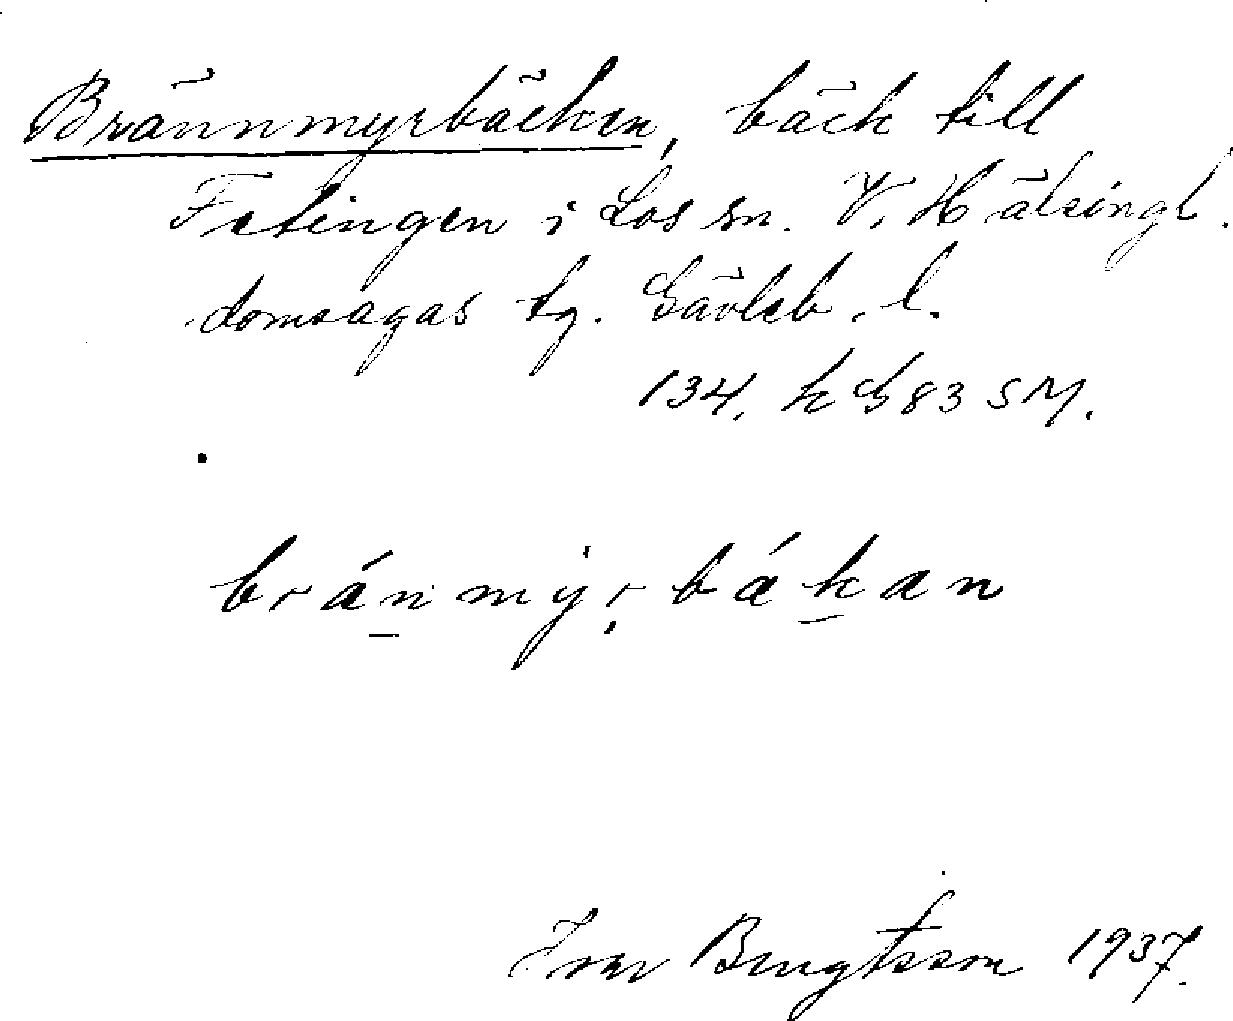 Brännmyrbäcken, bäck till
Fetingen i Los sn. V. Hälsingl.
domsagas tg. Gävleb. l.
134. kG83 SM.
bránmýrbákan
Ivar Bengtsson 1937.